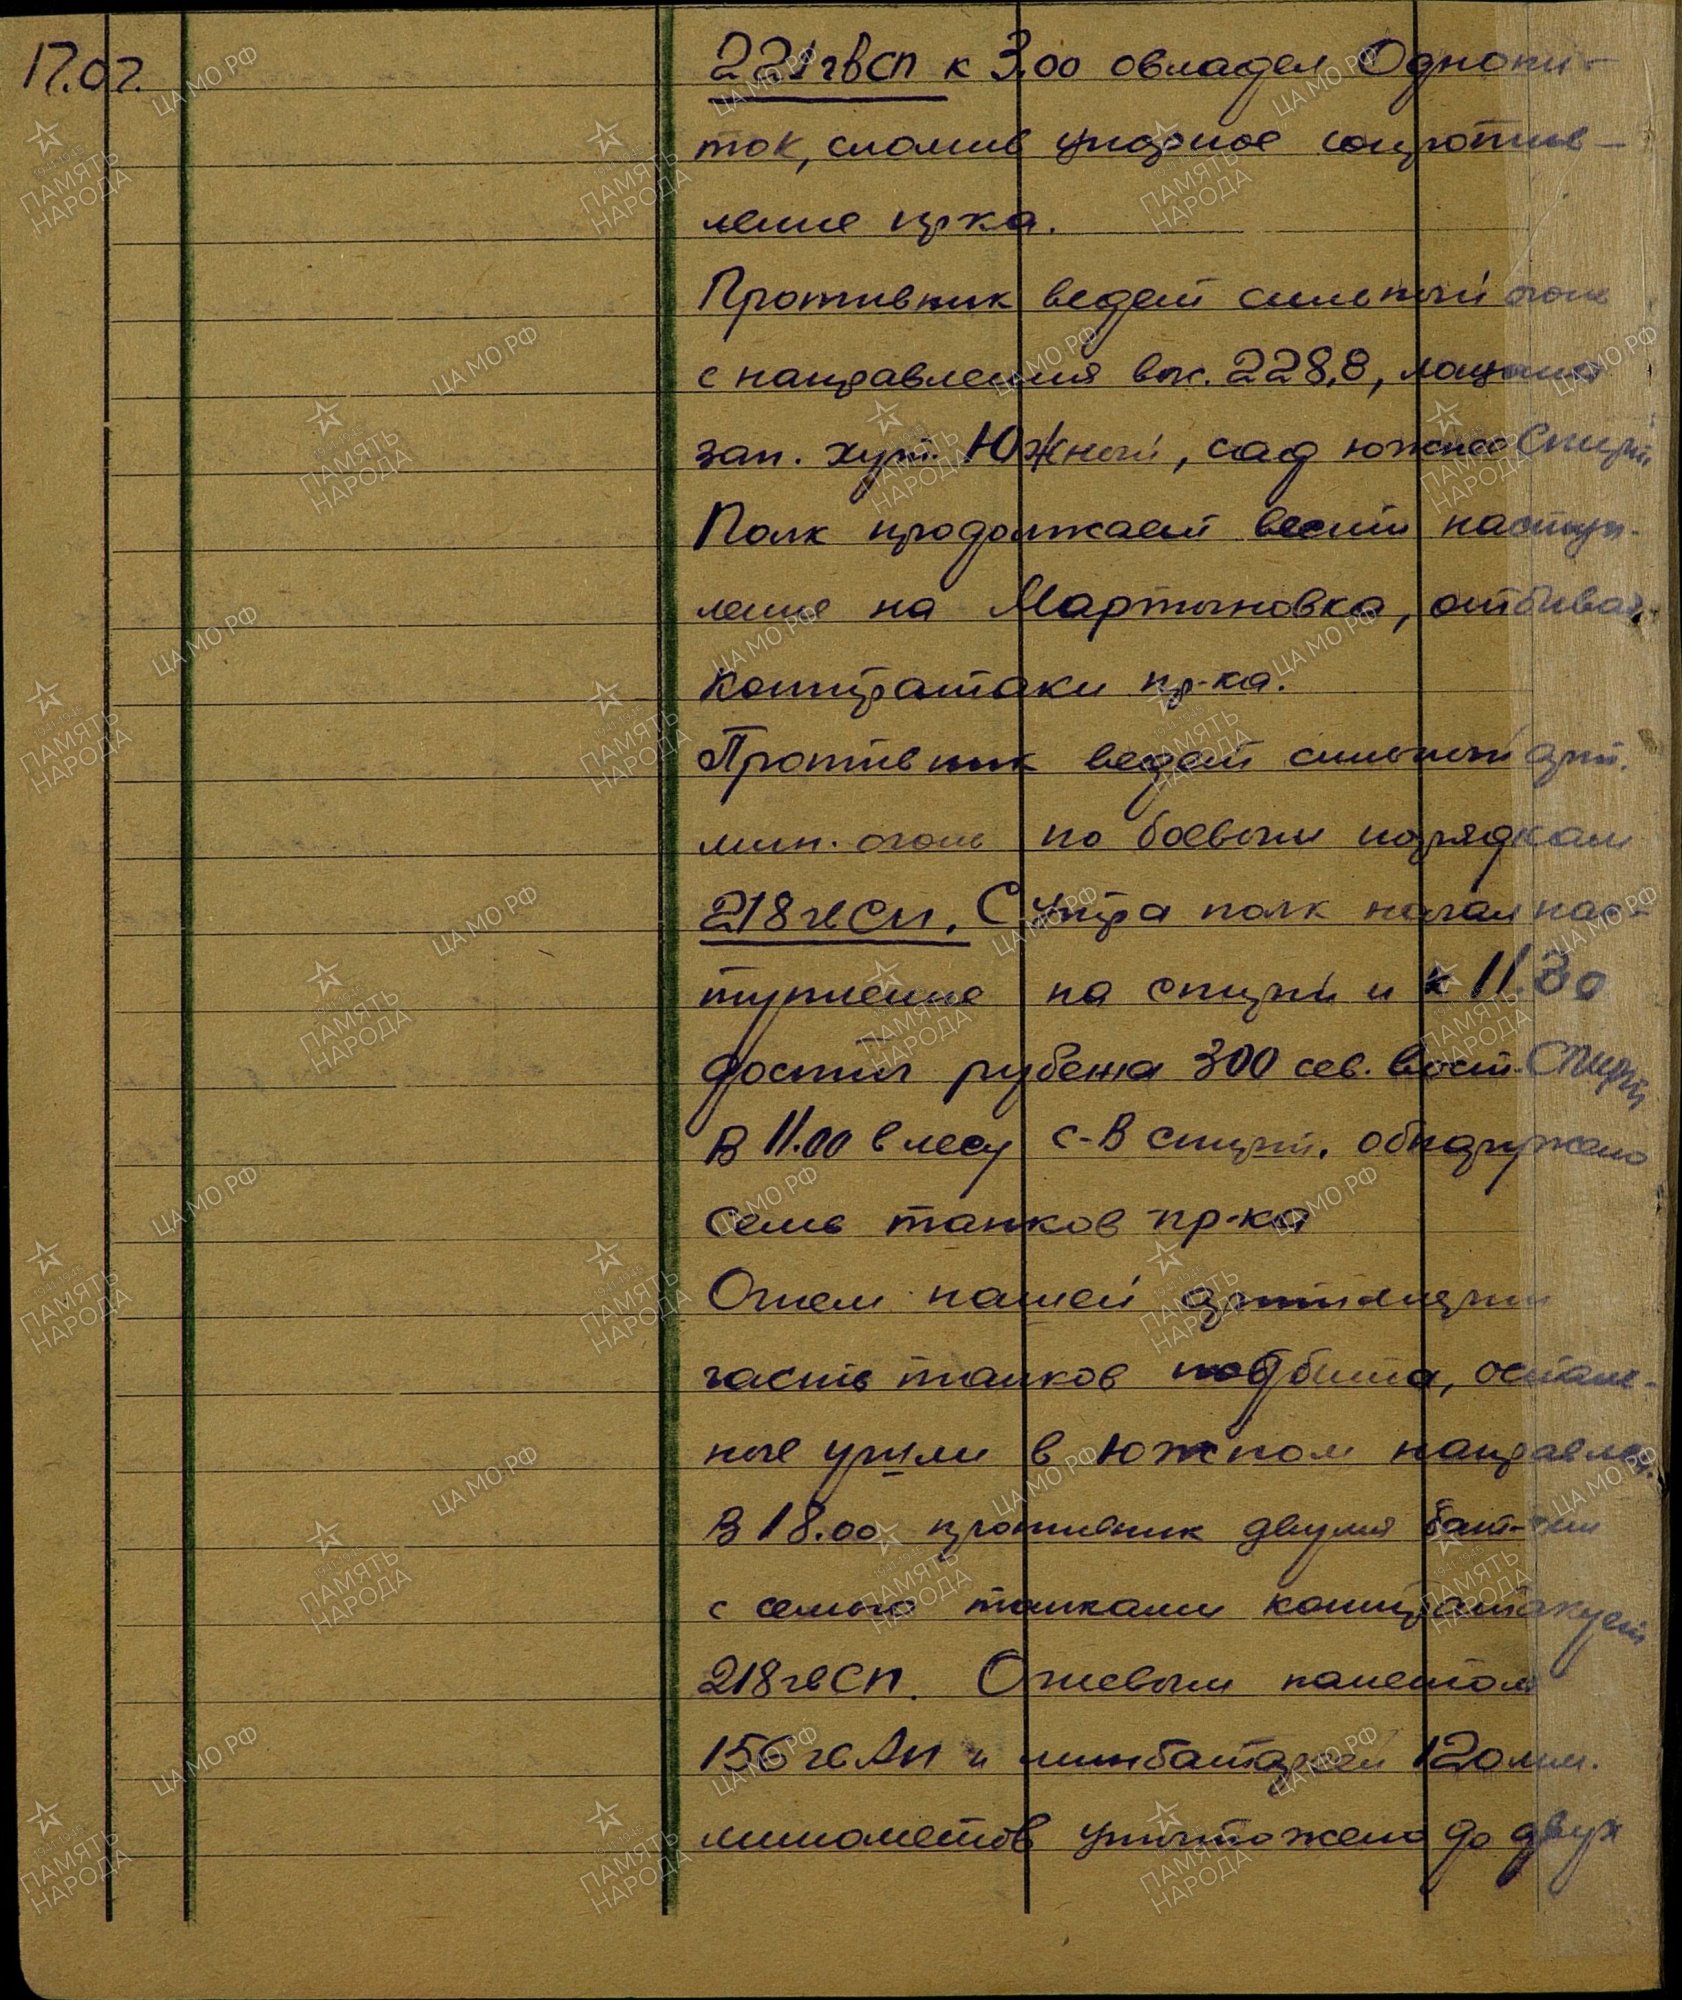 17.07. 221 гв сп к 3.00 овладел Однопи-
ток, сломив упорное сопротив-
ление пр-ка.
Противник ведет сильный огонь
с направления выс. 228,8, лощина
зап. хут. Южный, сад южнее Спирт.
Полк продолжает вести наступ-
ление на Мартыновка, отбивая
контратаки пр-ка.
Противник ведет сильный арт.
мин. огонь по боевым порядкам
218 гв СП. С утра полк начал нас-
тупление на спирт и к 11.30
достиг рубежа 300 сев. вост. Спирт
В 11.00 в лесу с-в спирт. обнаружено
семь танков пр-ка
Огнем нашей артиллерии
часть танков подбита, осталь-
ные ушли в южном направлен.
В 18.00 противник двумя бат-ми
с семью танками контратакует
218 гв СП. Огневым налетом
156 гв АП и минбатареей 120 мм.
минометов уничтожено до двух
ЦА МО РФ
ПАМЯТЬ НАРОДА